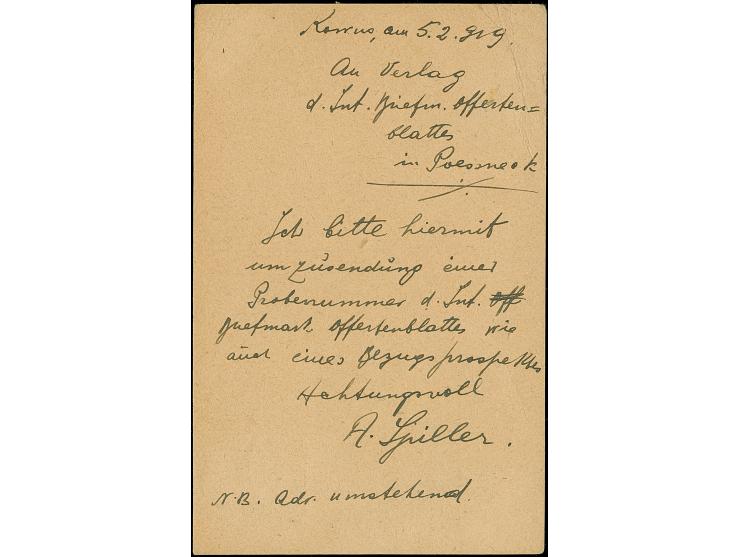 Kowno, am 5.2.919.
An Verlag
d. Int. Briefm. Offerten=
blattes
in Poessneck
Ich bitte hiermit
um Zusendung einer
Probenummer d. Int. Off
Briefmark Offertenblattes wie
auch eines Bezugsprospektes
Achtungsvoll
A. Spiller.
N.B. Adr. umstehend.